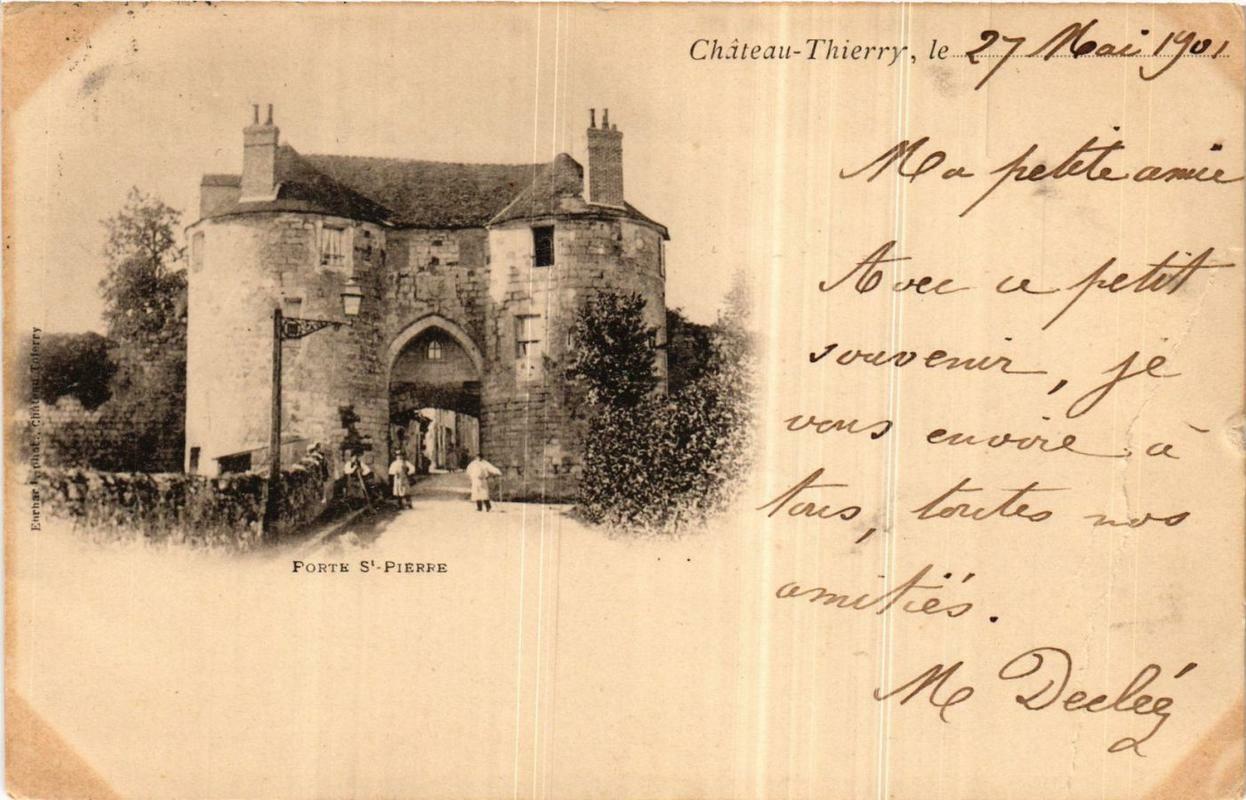 Château-Thierry, le 27 Mai 1901
Ma petite amie
Avec ce petit
souvenir, je
vous envoie à
tous, toutes nos
amitiés.
M
PORTE St-PIERRE
Château Thierry